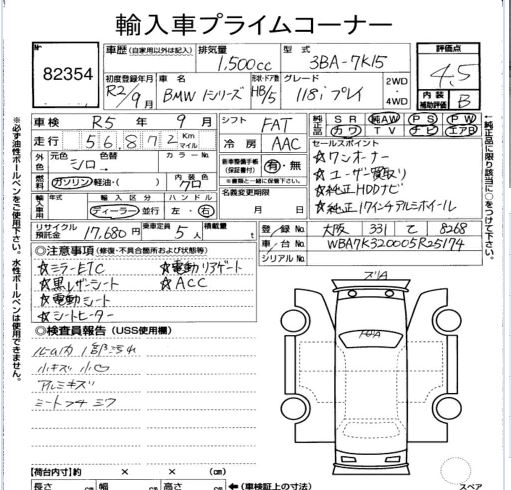 輸入車プライムコーナー
82354
車歴 (自家用以外は記入)
排気量
1,500cc
型式
3BA-7K15
評価点
4.5
内装補助評価
B
初度登録年月
R2/9月
車名
BMW 1シリーズ
形状・ドア数
HB/5
グレード
118i プレイ
2WD・4WD
車検 R5年 9月
走行 56,872 Km マイル
シフト FAT
冷房 AAC
純正品 SR 純AW PS PW
カワ TV ナビ エアB
外色 元色 シロ 色替 カラーNo.
燃料 ガソリン・軽油・( ) 内装色 クロ
輸入車用 年式 輸入区分 ハンドル
ディーラー・並行 左・右
新車整備手帳(保証書付) 有・無
※書類と一緒に保管して下さい。
名義変更期限
月 日
セールスポイント
☆ワンオーナー
☆ユーザー買取り
☆純正HDDナビ
☆純正17インチアルミホイール
リサイクル預託金 17,680円
乗車定員 5人
積載量 t
登録No. 大阪 331 て 8268
車台No. WBA7K320005R25174
シリアルNo.
◎注意事項 (修復・不具合箇所および状態等)
☆ミラーETC ☆電動リアゲート
☆黒レザーシート ☆ACC
☆電動シート
☆シートヒーター
◎検査員報告 (USS使用欄)
小キズ 小凹
アルミキズ
シートスレ シワ
【荷台内寸】約 × × (cm)
長さ cm 幅 cm 高さ cm ←(車検証上の寸法)
スペア
※必ず油性ボールペンをご使用下さい。水性ボールペンは使用できません。
←純正品に限り該当に○をつけて下さい。